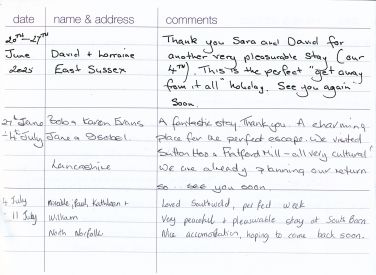 date name & address comments
20TH-27TH Thank you Sara and David for
June David + Lorraine another very pleasurable stay (our
2025 East Sussex 4TH). This is the perfect "get away
from it all" holiday. See you again
soon.
27th June Bob & Karen Evans A fantastic stay. Thank you. A charming
-4th July Jane & Isobel. place for the perfect escape. We visited
Sutton Hoo & Pakford Mill - all very cultural!
Lancashire We are already planning our return
so... see you soon.
4 July Kathleen + Loved Southwold, perfect week
- 11 July William Very peaceful & pleasurable stay at South Barn.
North Norfolk Nice accomodation, hoping to come back soon.